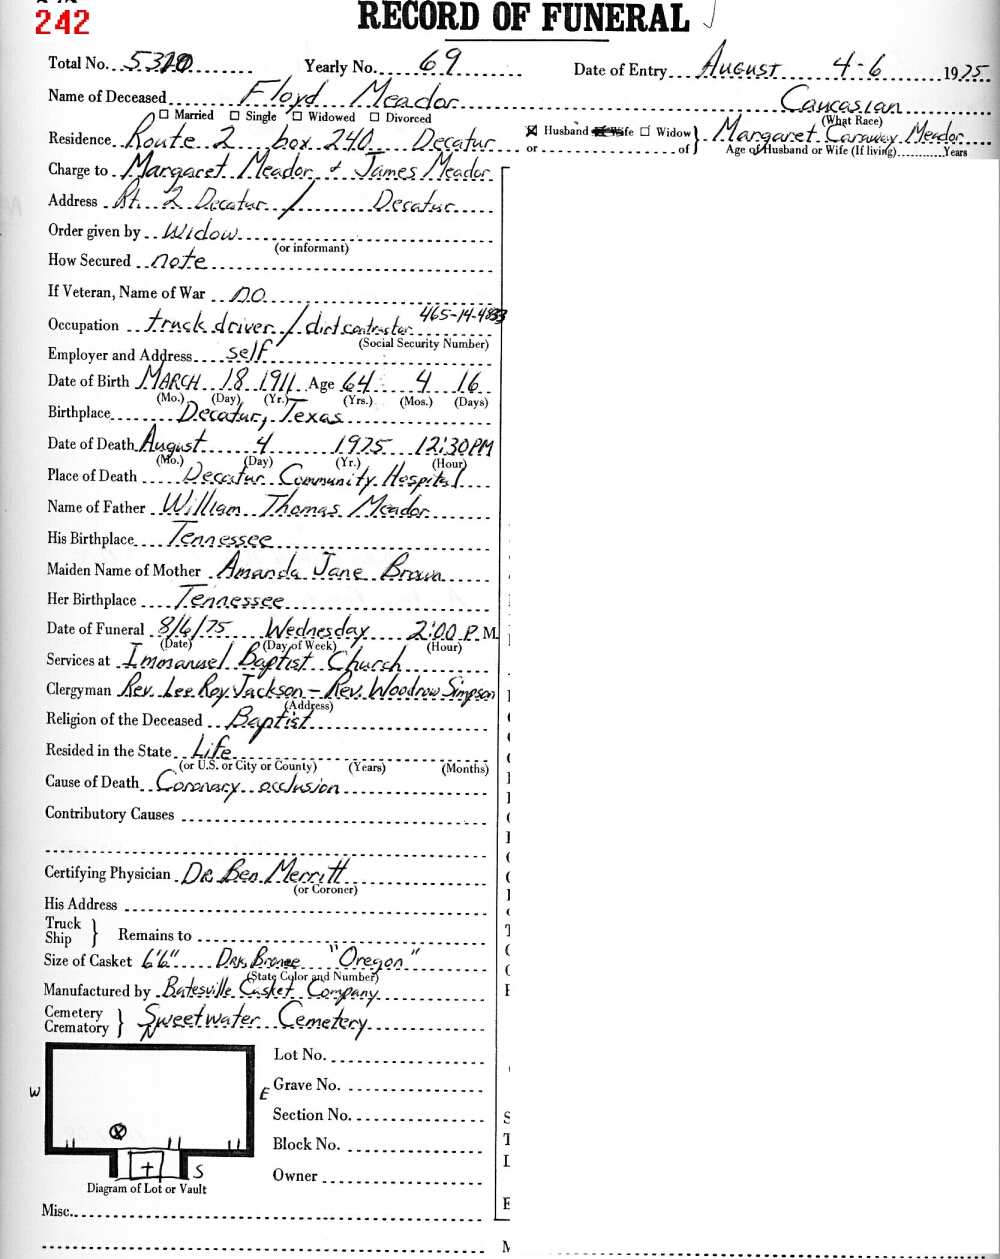 242
RECORD OF FUNERAL
Total No. 5310 Yearly No. 69 Date of Entry August 4-6 1975
Name of Deceased Floyd Meador Caucasian
☐ Married ☐ Single ☐ Widowed ☐ Divorced (What Race)
Residence Route 2 box 240 Decatur ☒ Husband Wife ☐ Widow } Margaret Caraway Meador
or of Age of Husband or Wife (If living) Years
Charge to Margaret Meador + James Meador
Address Rt. 2 Decatur / Decatur
Order given by Widow
(or informant)
How Secured note
If Veteran, Name of War no
Occupation truck driver / dirt contractor 465-14-4833
(Social Security Number)
Employer and Address self
Date of Birth MARCH 18 1911 Age 64 4 16
(Mo.) (Day) (Yr.) (Yrs.) (Mos.) (Days)
Birthplace Decatur, Texas
Date of Death August 4 1975 12:30 PM
(Mo.) (Day) (Yr.) (Hour)
Place of Death Decatur Community Hospital
Name of Father William Thomas Meador
His Birthplace Tennessee
Maiden Name of Mother Amanda Jane Brown
Her Birthplace Tennessee
Date of Funeral 8/6/75 Wednesday 2:00 P.M.
(Date) (Day of Week) (Hour)
Services at Immanuel Baptist Church
Clergyman Rev. Lee Roy Jackson - Rev. Woodrow Simpson
(Address)
Religion of the Deceased Baptist
Resided in the State Life
(or U.S. or City or County) (Years) (Months)
Cause of Death Coronary occlusion
Contributory Causes
Certifying Physician Dr. Ben Merritt
(or Coroner)
His Address
Truck
Ship } Remains to
Size of Casket 6'6" Drk. Bronze "Oregon"
(State Color and Number)
Manufactured by Batesville Casket Company
Cemetery
Crematory } Sweetwater Cemetery
N
Lot No.
W E Grave No.
Section No.
Block No.
S Owner
Diagram of Lot or Vault
Misc.